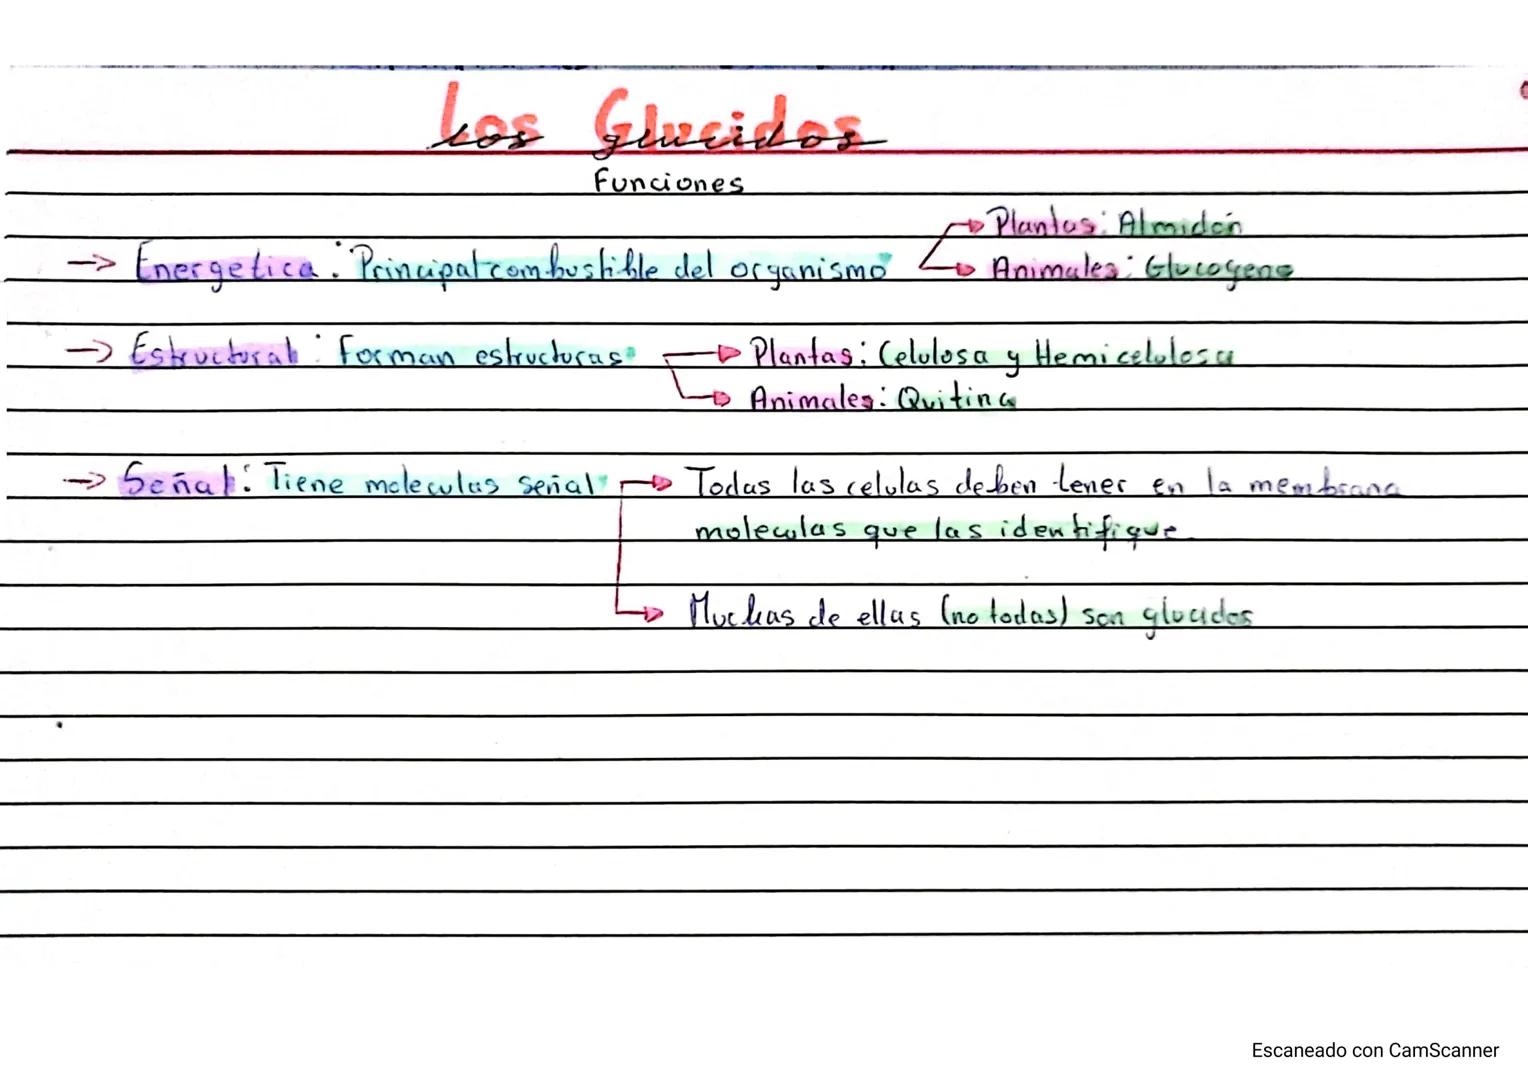 Los Glucidos
los glucidos
Funciones
→ Energetica: Principal combustible del organismo → Plantas: Almidón
→ Animales: Glucogeno
→ Estructural: Forman estructuras → Plantas: Celulosa y Hemicelulosa
→ Animales: Quitina
→ Señal: Tiene moleculas señal → Todas las celulas deben tener en la membrana
moleculas que las identifique
→ Muchas de ellas (no todas) son glucidos
Escaneado con CamScanner